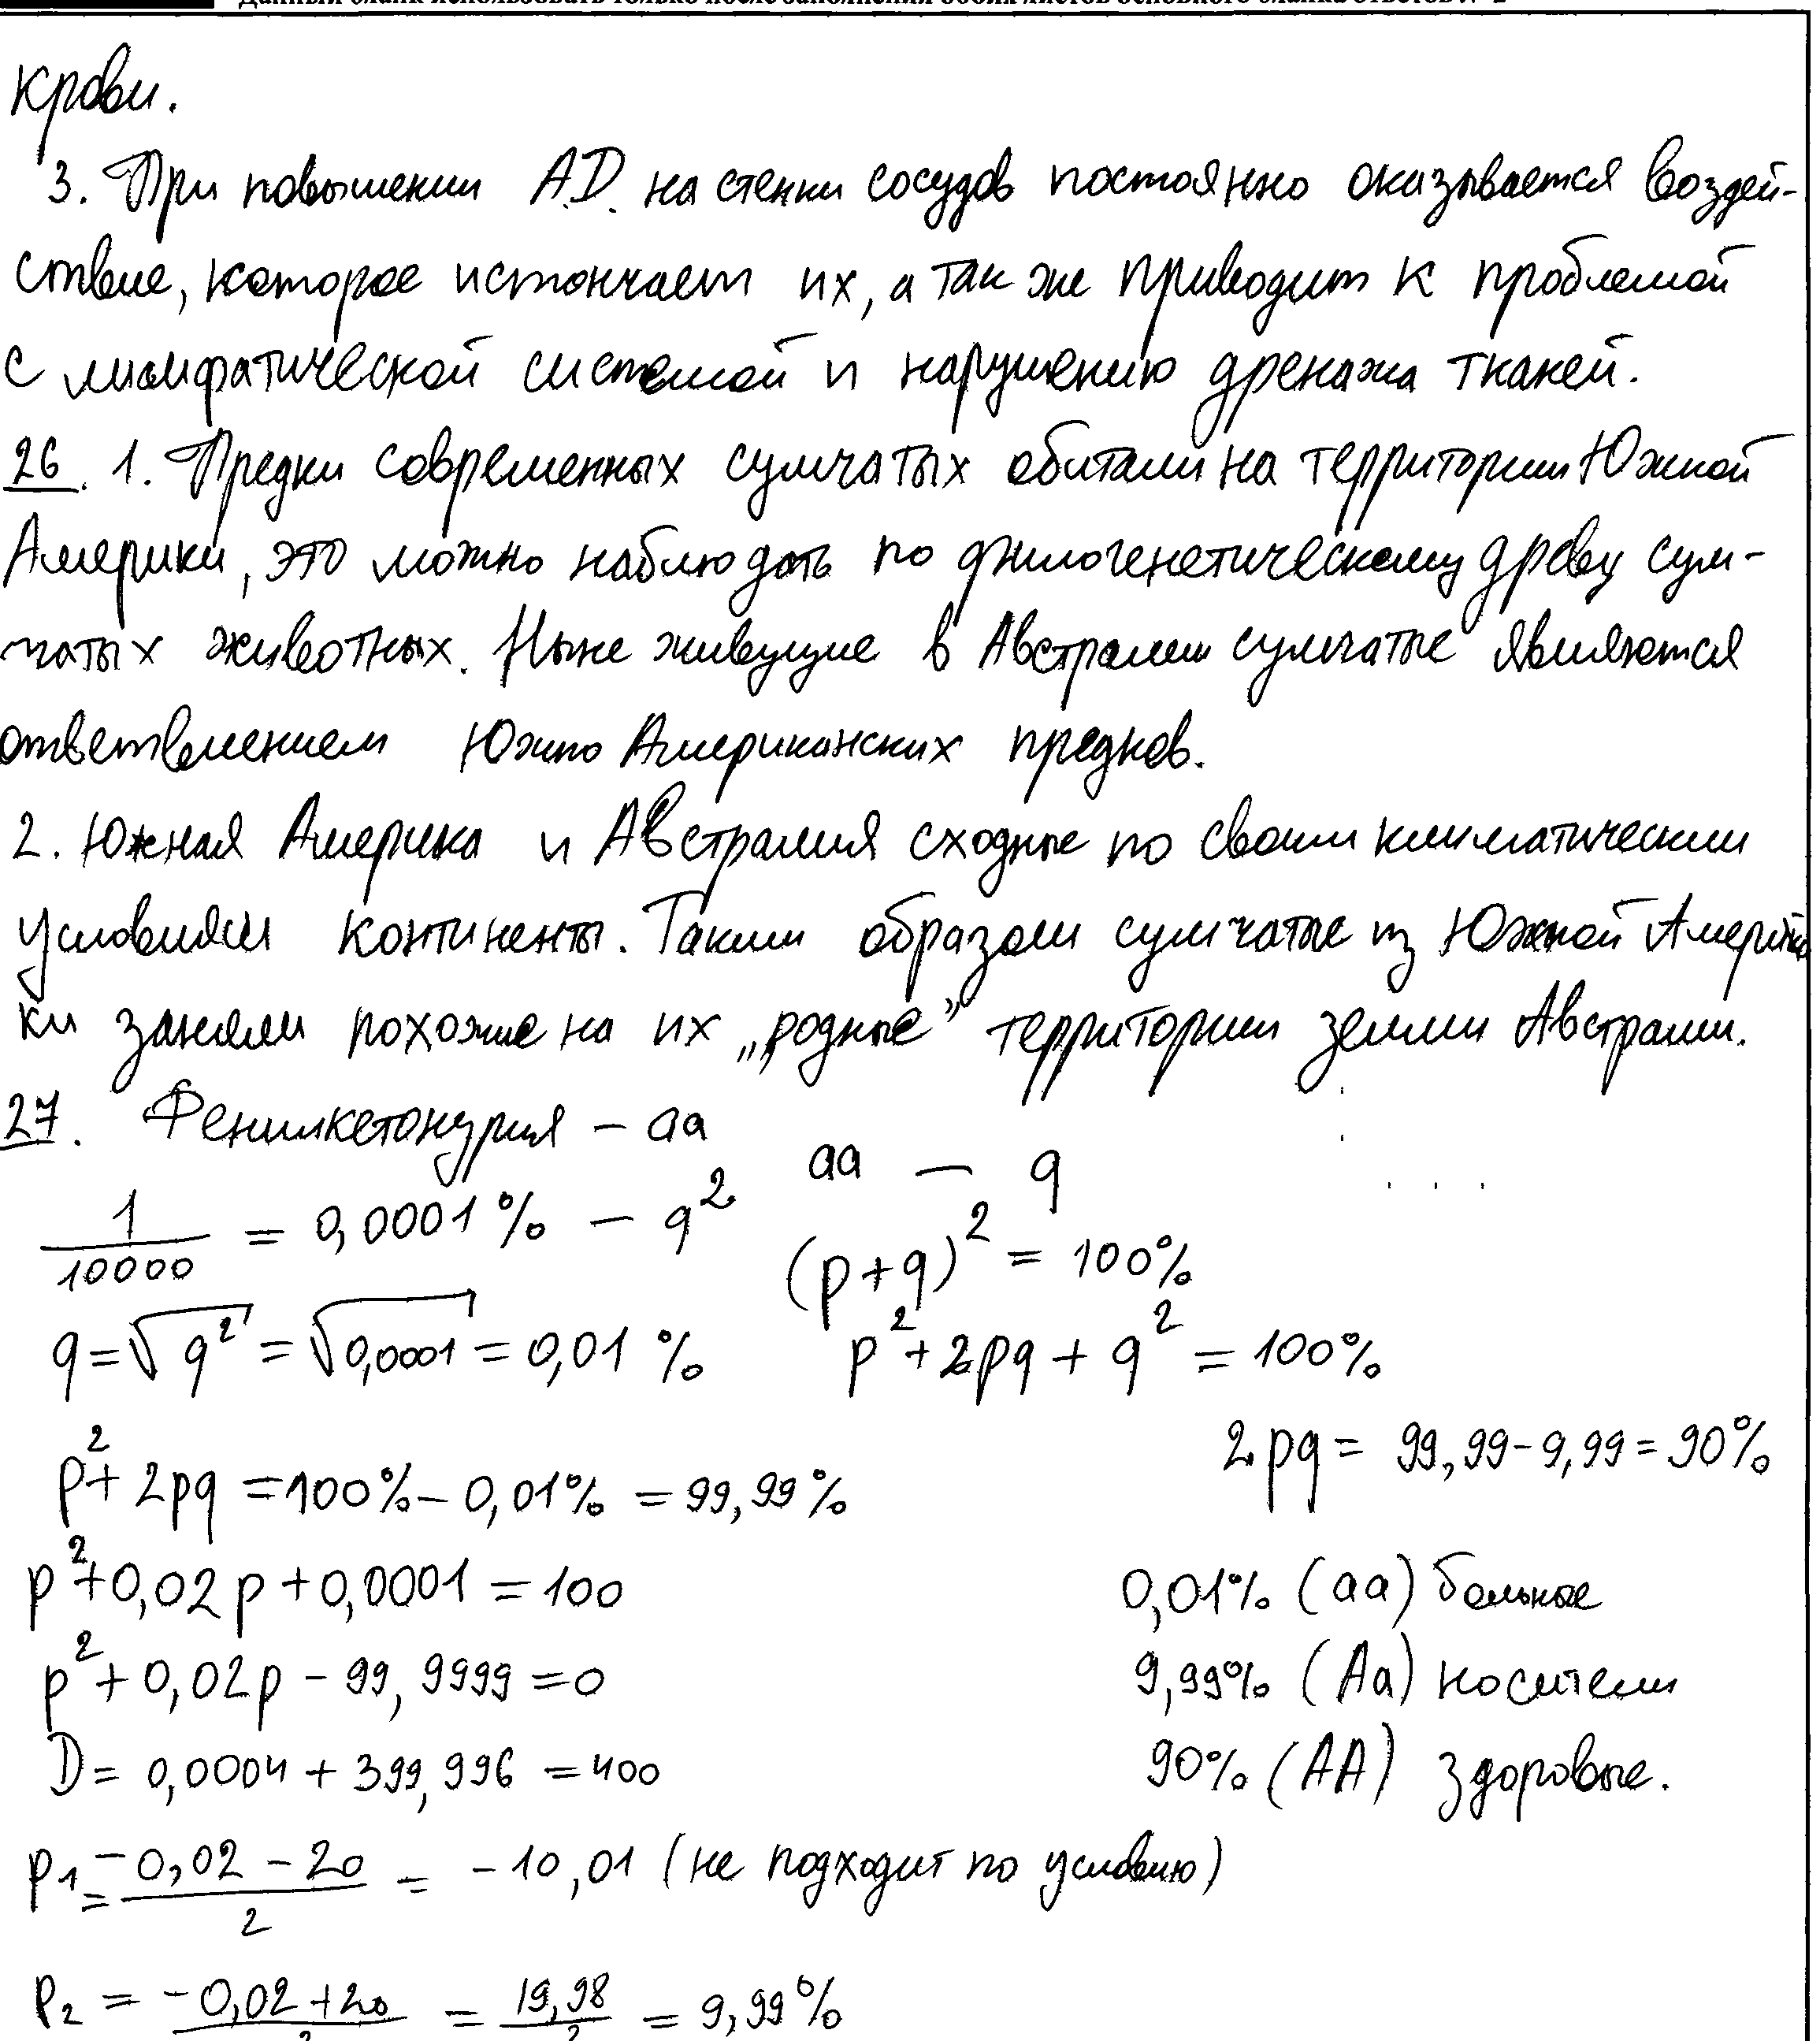 Данный бланк использовать только после заполнения обоих листов основного бланка ответов № 2
крови.
3. При повышении А.D. на стенки сосудов постоянно оказывается воздей-
ствие, которое истончает их, а так же приводит к проблемой
с лимфатической системой и нарушению дренажа тканей.
26. 1. Предки современных сумчатых обитали на территории Южной
Америки, это можно наблюдать по филогенетическому древу сум-
чатых животных. Ныне живущие в Австралии сумчатые являются
ответвлением Южно Американских предков.
2. Южная Америка и Австралия сходные по своим климатическим
условиям континенты. Таким образом сумчатые из Южной Амери
ки заняли похожие на их „родные” территории земли Австралии.
27. Фенилкетонурия – aa
aa — q
1/10000 = 0,0001 % – q²
(p+q)² = 100%
q = √q² = √0,0001 = 0,01 %
p² + 2pq + q² = 100%
2pq = 99,99 - 9,99 = 90%
p² + 2pq = 100% – 0,01% = 99,99%
p² + 0,02p + 0,0001 = 100
0,01% (aa) больные
p² + 0,02p – 99,9999 = 0
9,99% (Aa) носители
D = 0,0004 + 399,996 = 400
90% (AA) здоровые.
p1 = (-0,02 – 20)/2 = -10,01 (не подходит по условию)
p2 = (-0,02 + 20)/2 = 19,98/2 = 9,99%